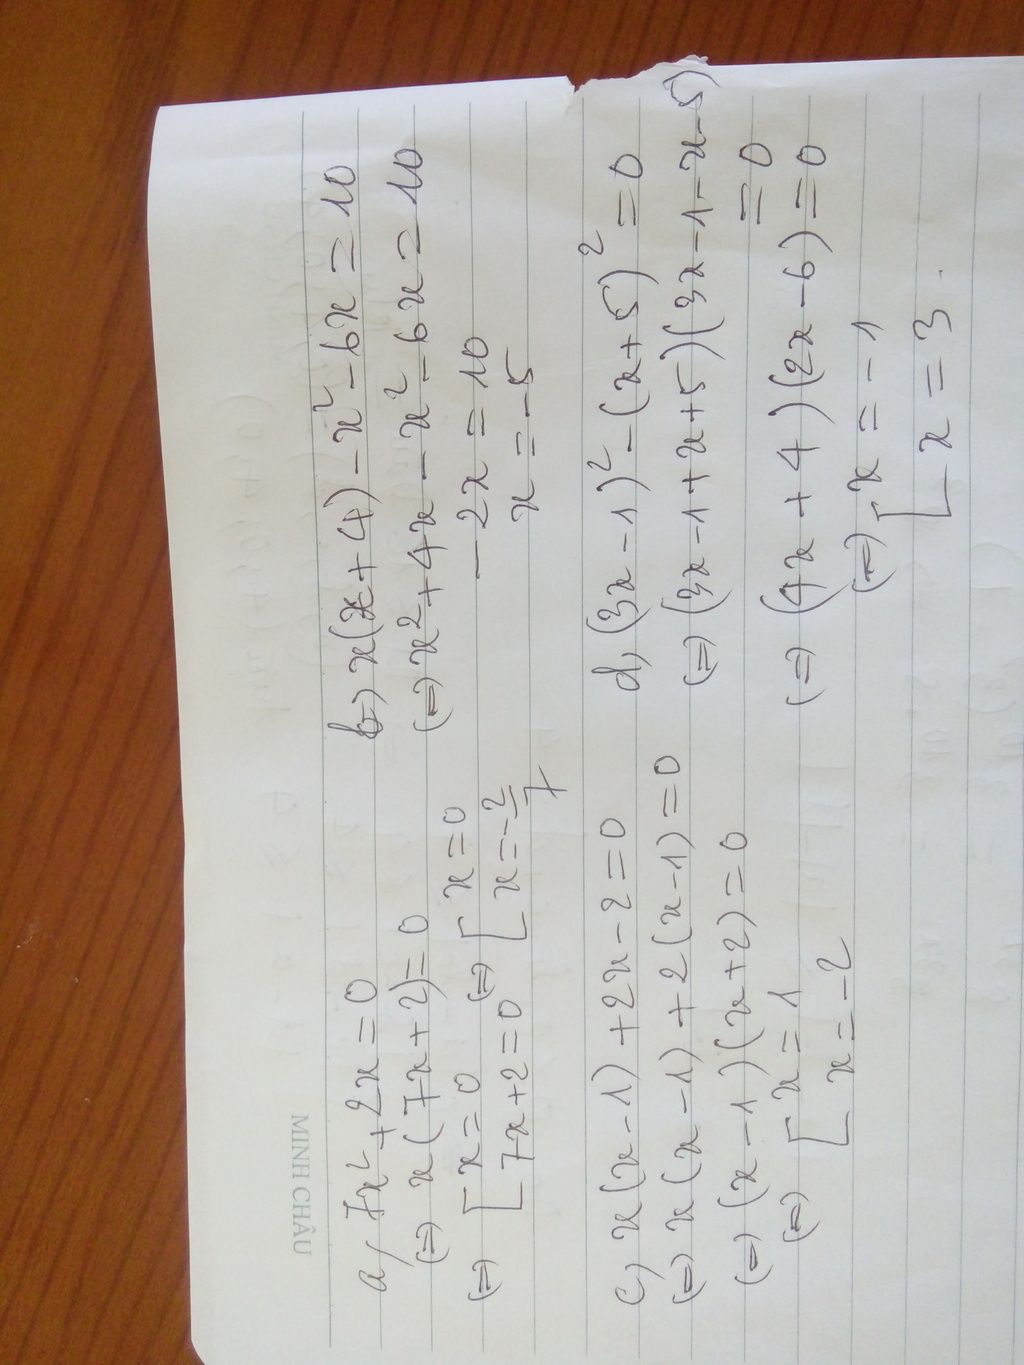 MINH CHÂU
a, 7x² + 2x = 0
(=) x(7x + 2) = 0
(=) [ x = 0 (=) [ x = 0
[ 7x + 2 = 0 [ x = -2/7
b, x(x + 4) - x² - 6x = 10
(=) x² + 4x - x² - 6x = 10
- 2x = 10
x = -5
c, x(x - 1) + 2x - 2 = 0
(=) x(x - 1) + 2(x - 1) = 0
(=) (x - 1)(x + 2) = 0
(=) [ x = 1
[ x = -2
d, (3x - 1)² - (x + 5)² = 0
(=) (3x - 1 + x + 5)(3x - 1 - x - 5)
= 0
(=) (4x + 4)(2x - 6) = 0
(=) [ x = -1
[ x = 3.